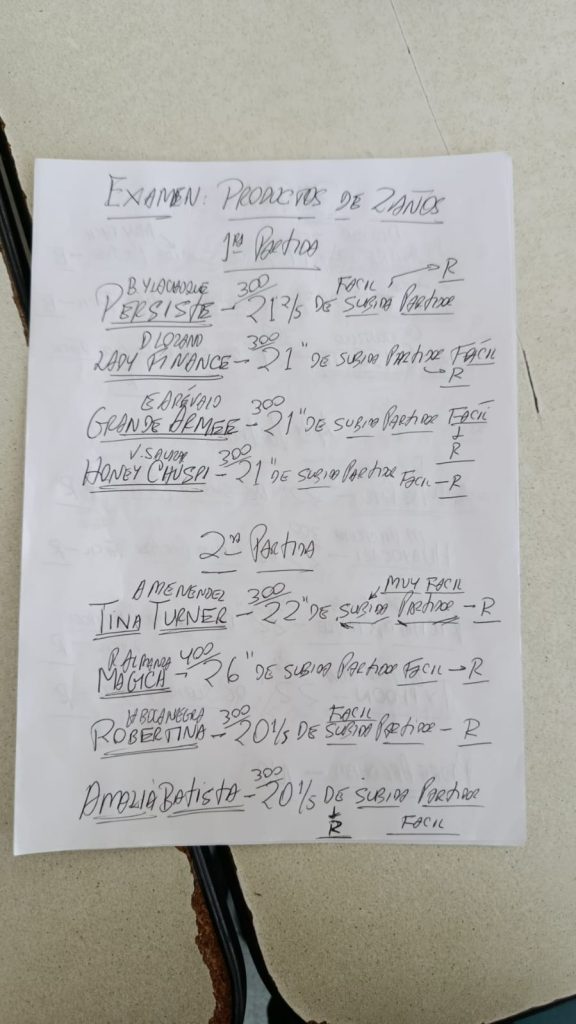 EXAMEN: PRODUCTOS DE 2 AÑOS
1ra PARTIDA
PERSISTE - 300 21 2/5 DE SUBIDA PARTIDOR FACIL → R
D LOZANO
LADY FINANCE - 300 21" DE SUBIDA PARTIDOR FÁCIL R
E ARÉVALO
GRANDE ARMEE - 300 21" DE SUBIDA PARTIDOR FACÍL R
HONEY CHUSPI - 300 21" DE SUBIDA PARTIDOR FACIL - R
2da PARTIDA
A MENENDEZ
TINA TURNER - 300 22" DE SUBIDA PARTIDOR MUY FACIL - R
MÁGICA - 400 26" DE SUBIDA PARTIDOR FACIL → R
ROBERTINA - 300 20 1/5 DE SUBIDA PARTIDOR FACIL - R
AMALIA BATISTA - 300 20 1/5 DE SUBIDA PARTIDOR
R FACIL